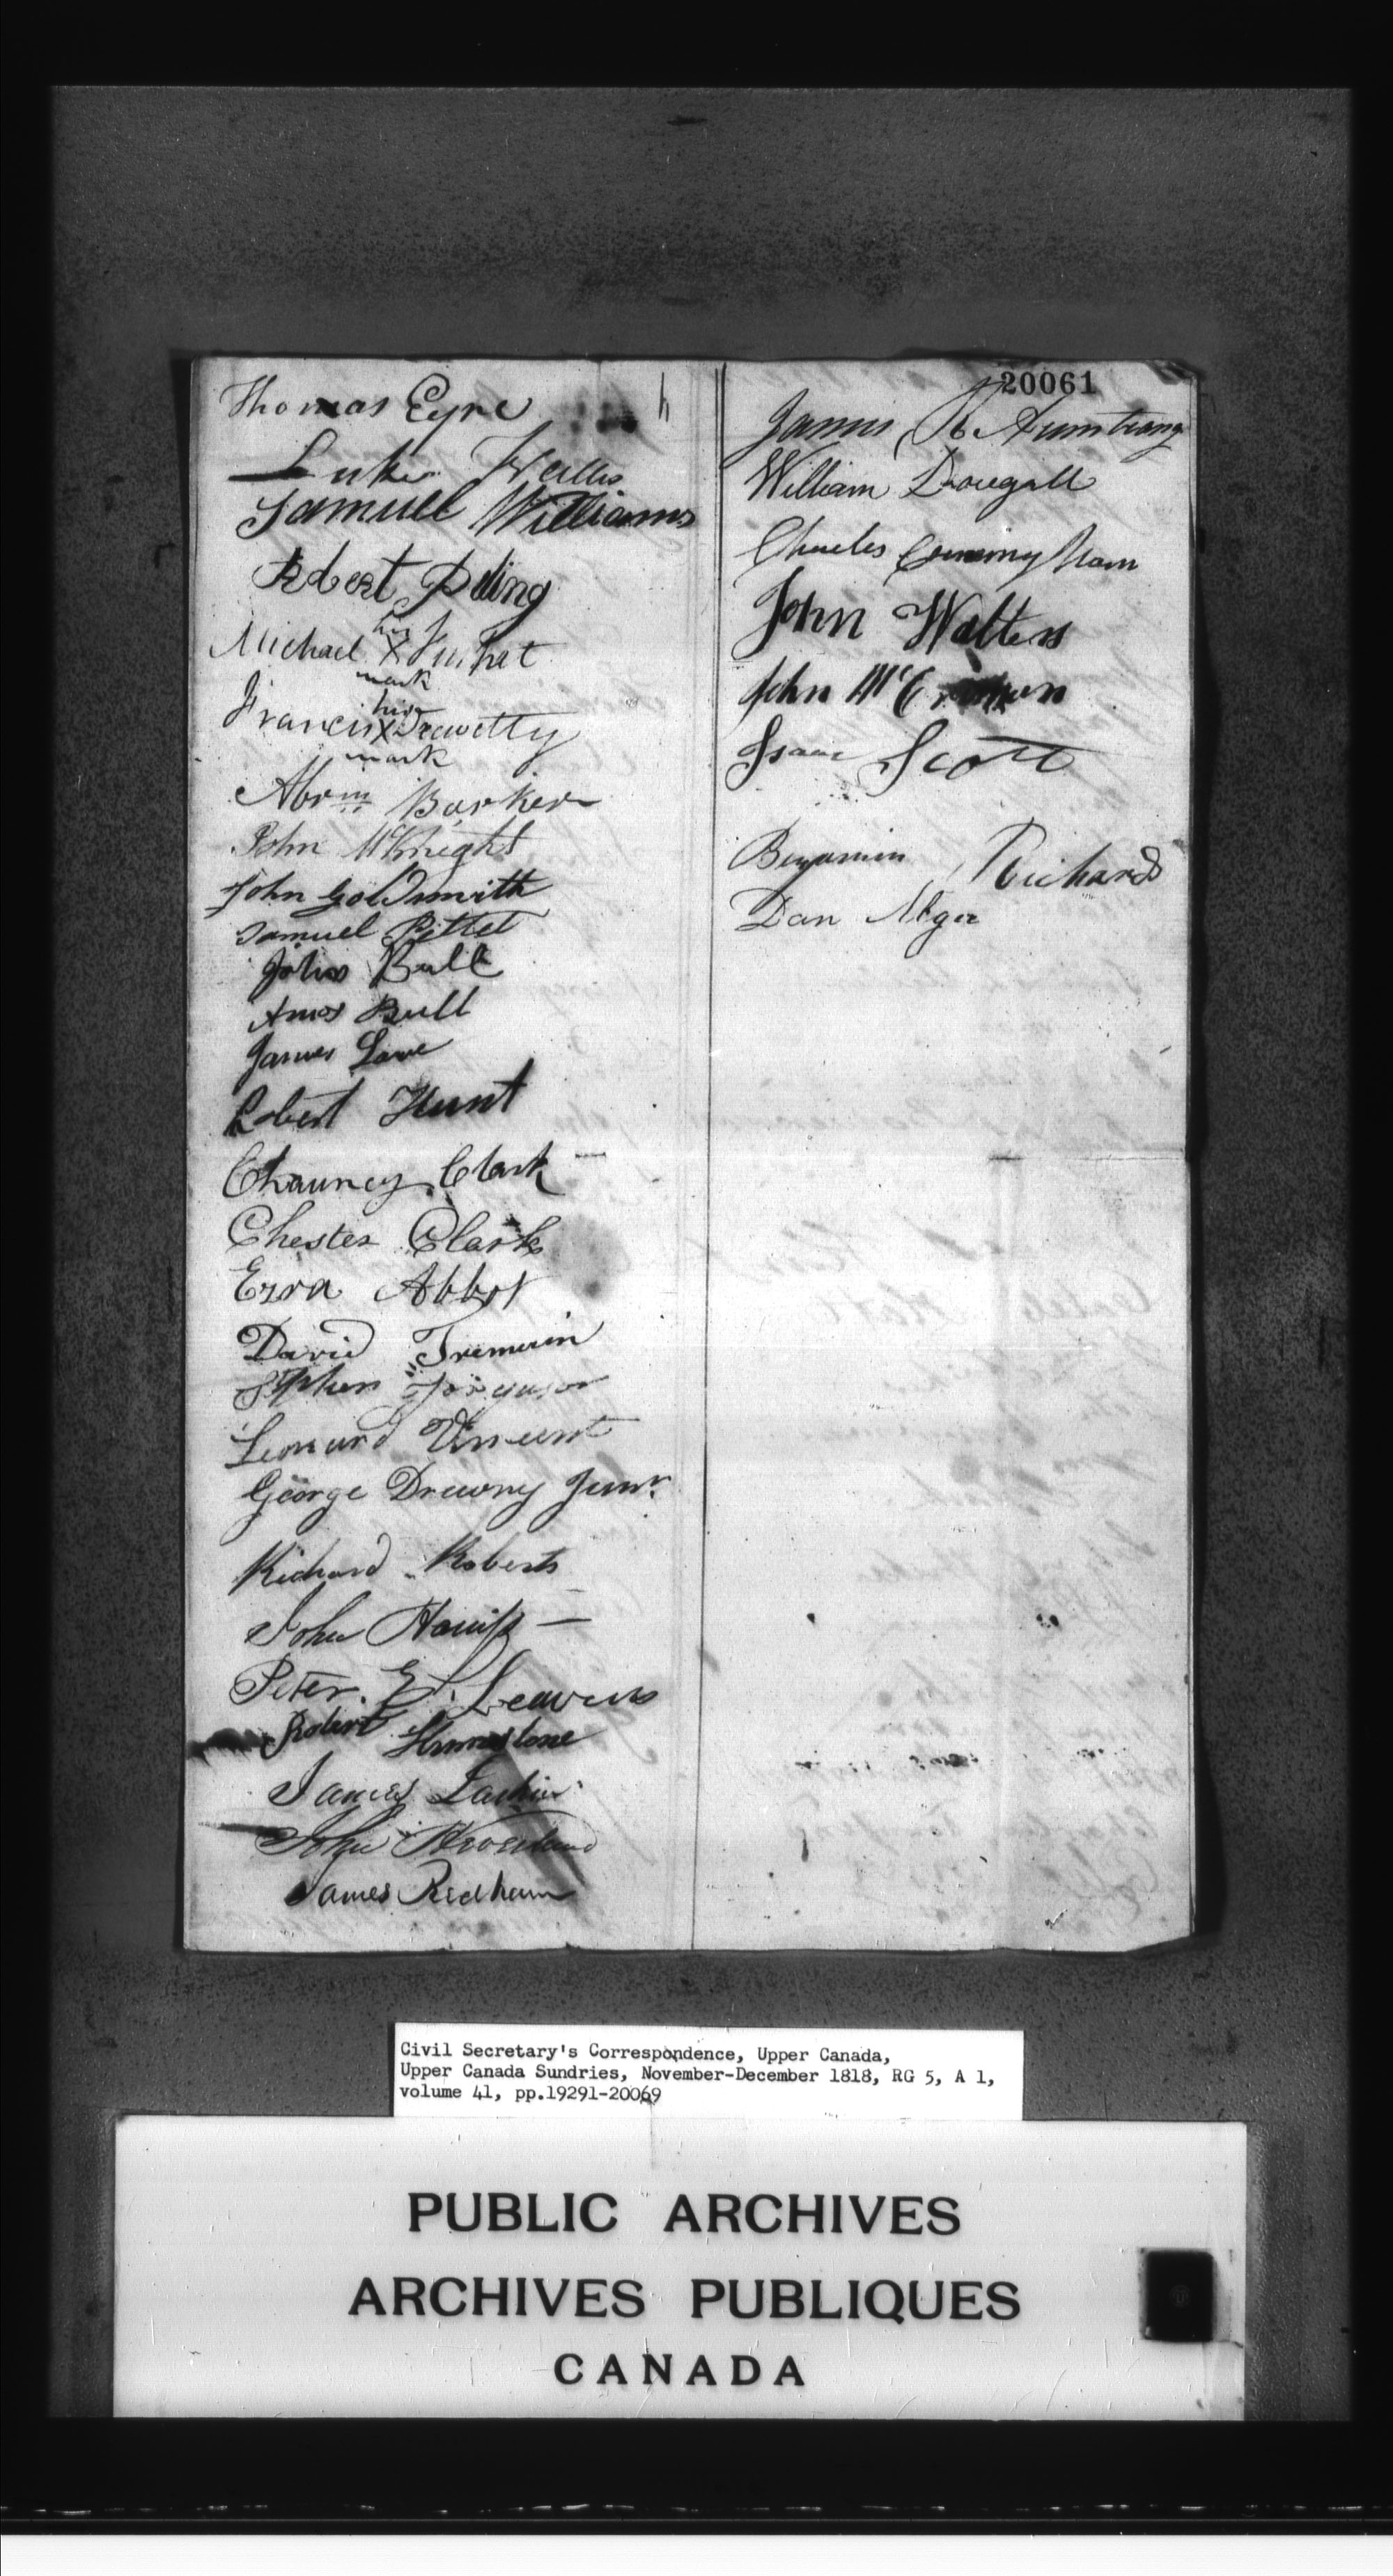 Thomas Eyre
Luke Wallis
Samuel Williams
Robert
his
Michael X
mark
his
Francis X Drewetty
mark
Abrm Barker
John McKnight
John Goldsmith
Samuel Pettet
John Bull
Amos Bull
James Lane
Robert Hunt
Chauncy Clark
Chester Clark
Ezra Abbot
David Tremain
Stephen Forguson
Leonard Vincent
George Drewry Junr.
Richard Roberts
John
Peter. E. Leavens
Robert
James
John
James Redham
20061
James R Armstrong
William Dougall
Charles Cunningham
John Walters
John
Isaac Scott
Benjamin Richards
Dan Alger
Civil Secretary's Correspondence, Upper Canada,
Upper Canada Sundries, November-December 1818, RG 5, A 1,
volume 41, pp.19291-20069
PUBLIC ARCHIVES
ARCHIVES PUBLIQUES
CANADA